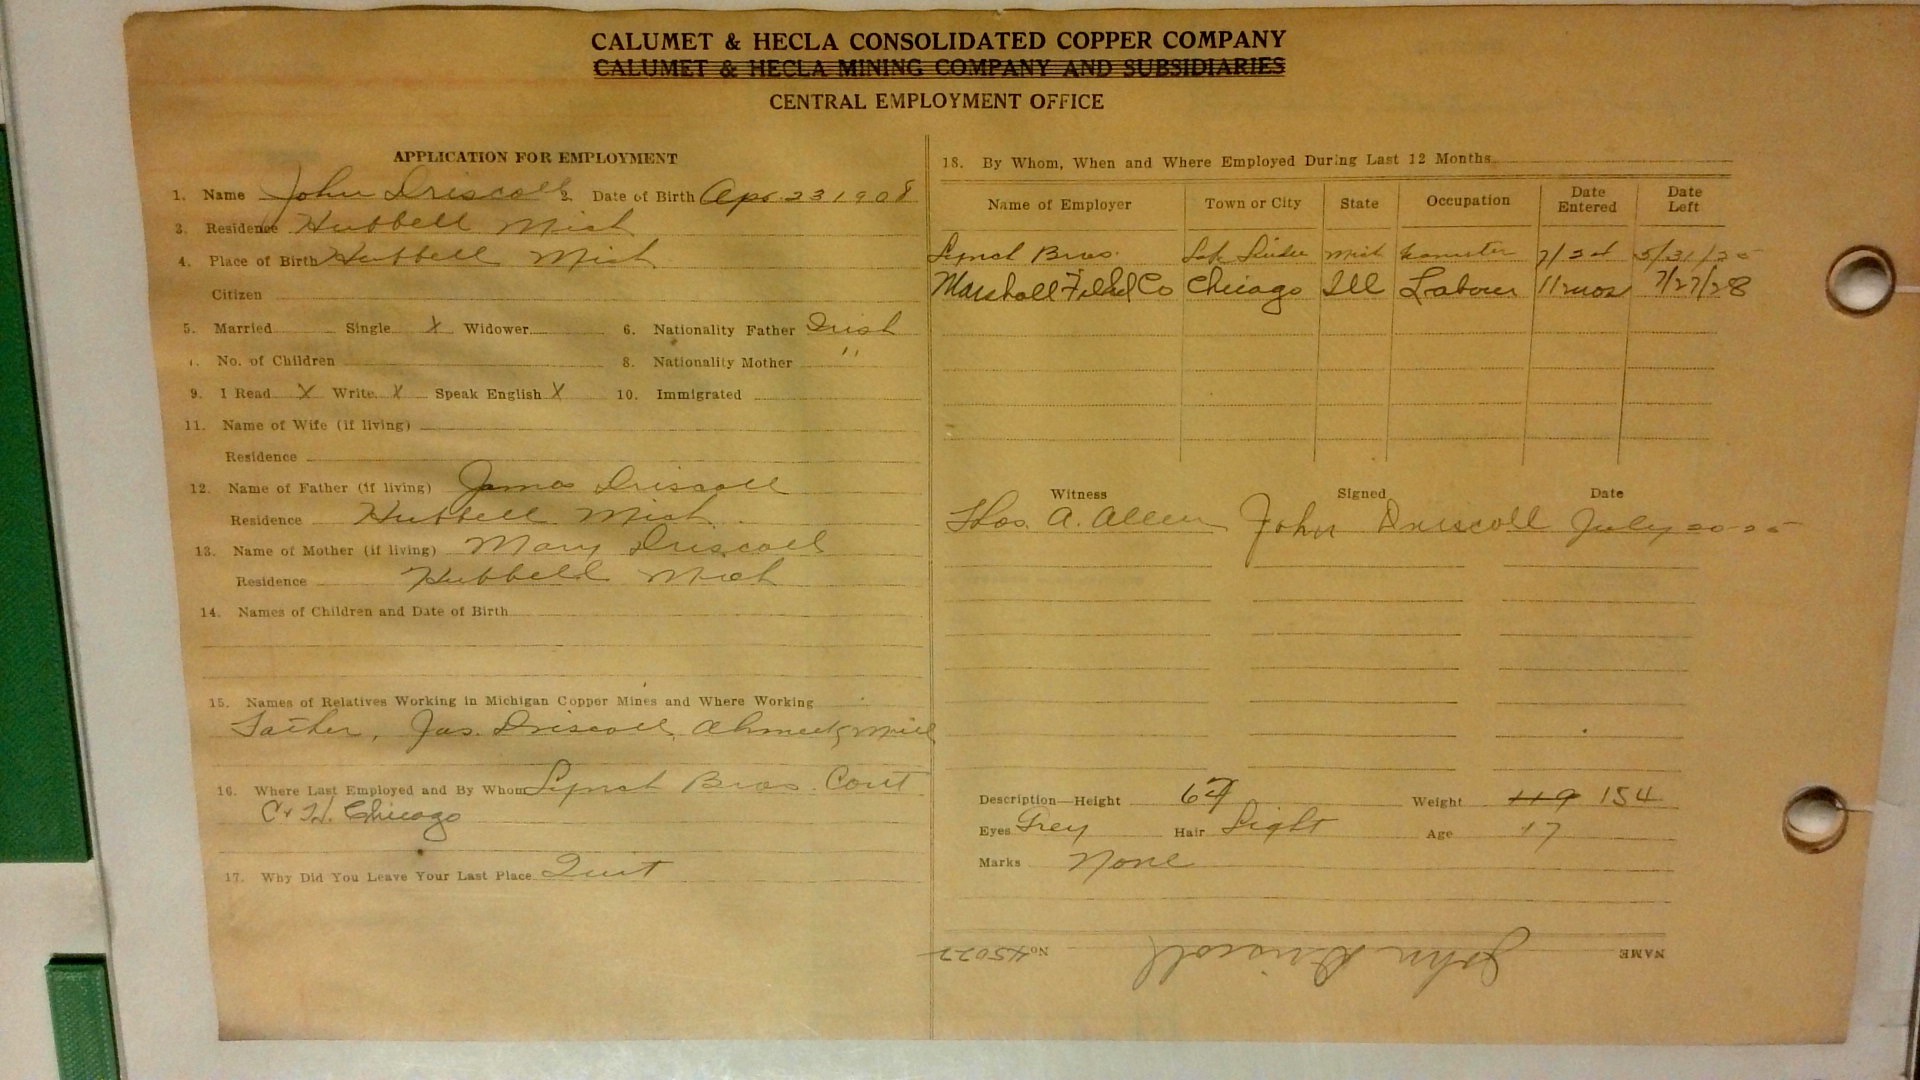 CALUMET & HECLA CONSOLIDATED COPPER COMPANY
CALUMET & HECLA MINING COMPANY AND SUBSIDIARIES
CENTRAL EMPLOYMENT OFFICE
APPLICATION FOR EMPLOYMENT
1. Name John Driscoll 2. Date of Birth Apr. 23 1908
3. Residence Hubbell Mich
4. Place of Birth Hubbell Mich
Citizen
5. Married Single X Widower 6. Nationality Father Irish
7. No. of Children 8. Nationality Mother "
9. I Read X Write X Speak English X 10. Immigrated
11. Name of Wife (if living)
Residence
12. Name of Father (if living) James Driscoll
Residence Hubbell Mich.
13. Name of Mother (if living) Mary Driscoll
Residence Hubbell Mich
14. Names of Children and Date of Birth
15. Names of Relatives Working in Michigan Copper Mines and Where Working
Father, Jas. Driscoll, Ahmeek Mill
16. Where Last Employed and By Whom Lynch Bros. Cont
C & H. Chicago
17. Why Did You Leave Your Last Place Quit
18. By Whom, When and Where Employed During Last 12 Months
Name of Employer Town or City State Occupation Date Entered Date Left
Lynch Bros. Lak Linden Mich Teamster 5/31/25
Marshall Field Co Chicago Ill Labour 11 mos 7/27/28
Witness Signed Date
Thos. A. Allen John Driscoll July 20-25
Description—Height Weight 119 154
Eyes Grey Hair Light Age 17
Marks None
NAME John Driscoll No. 45022